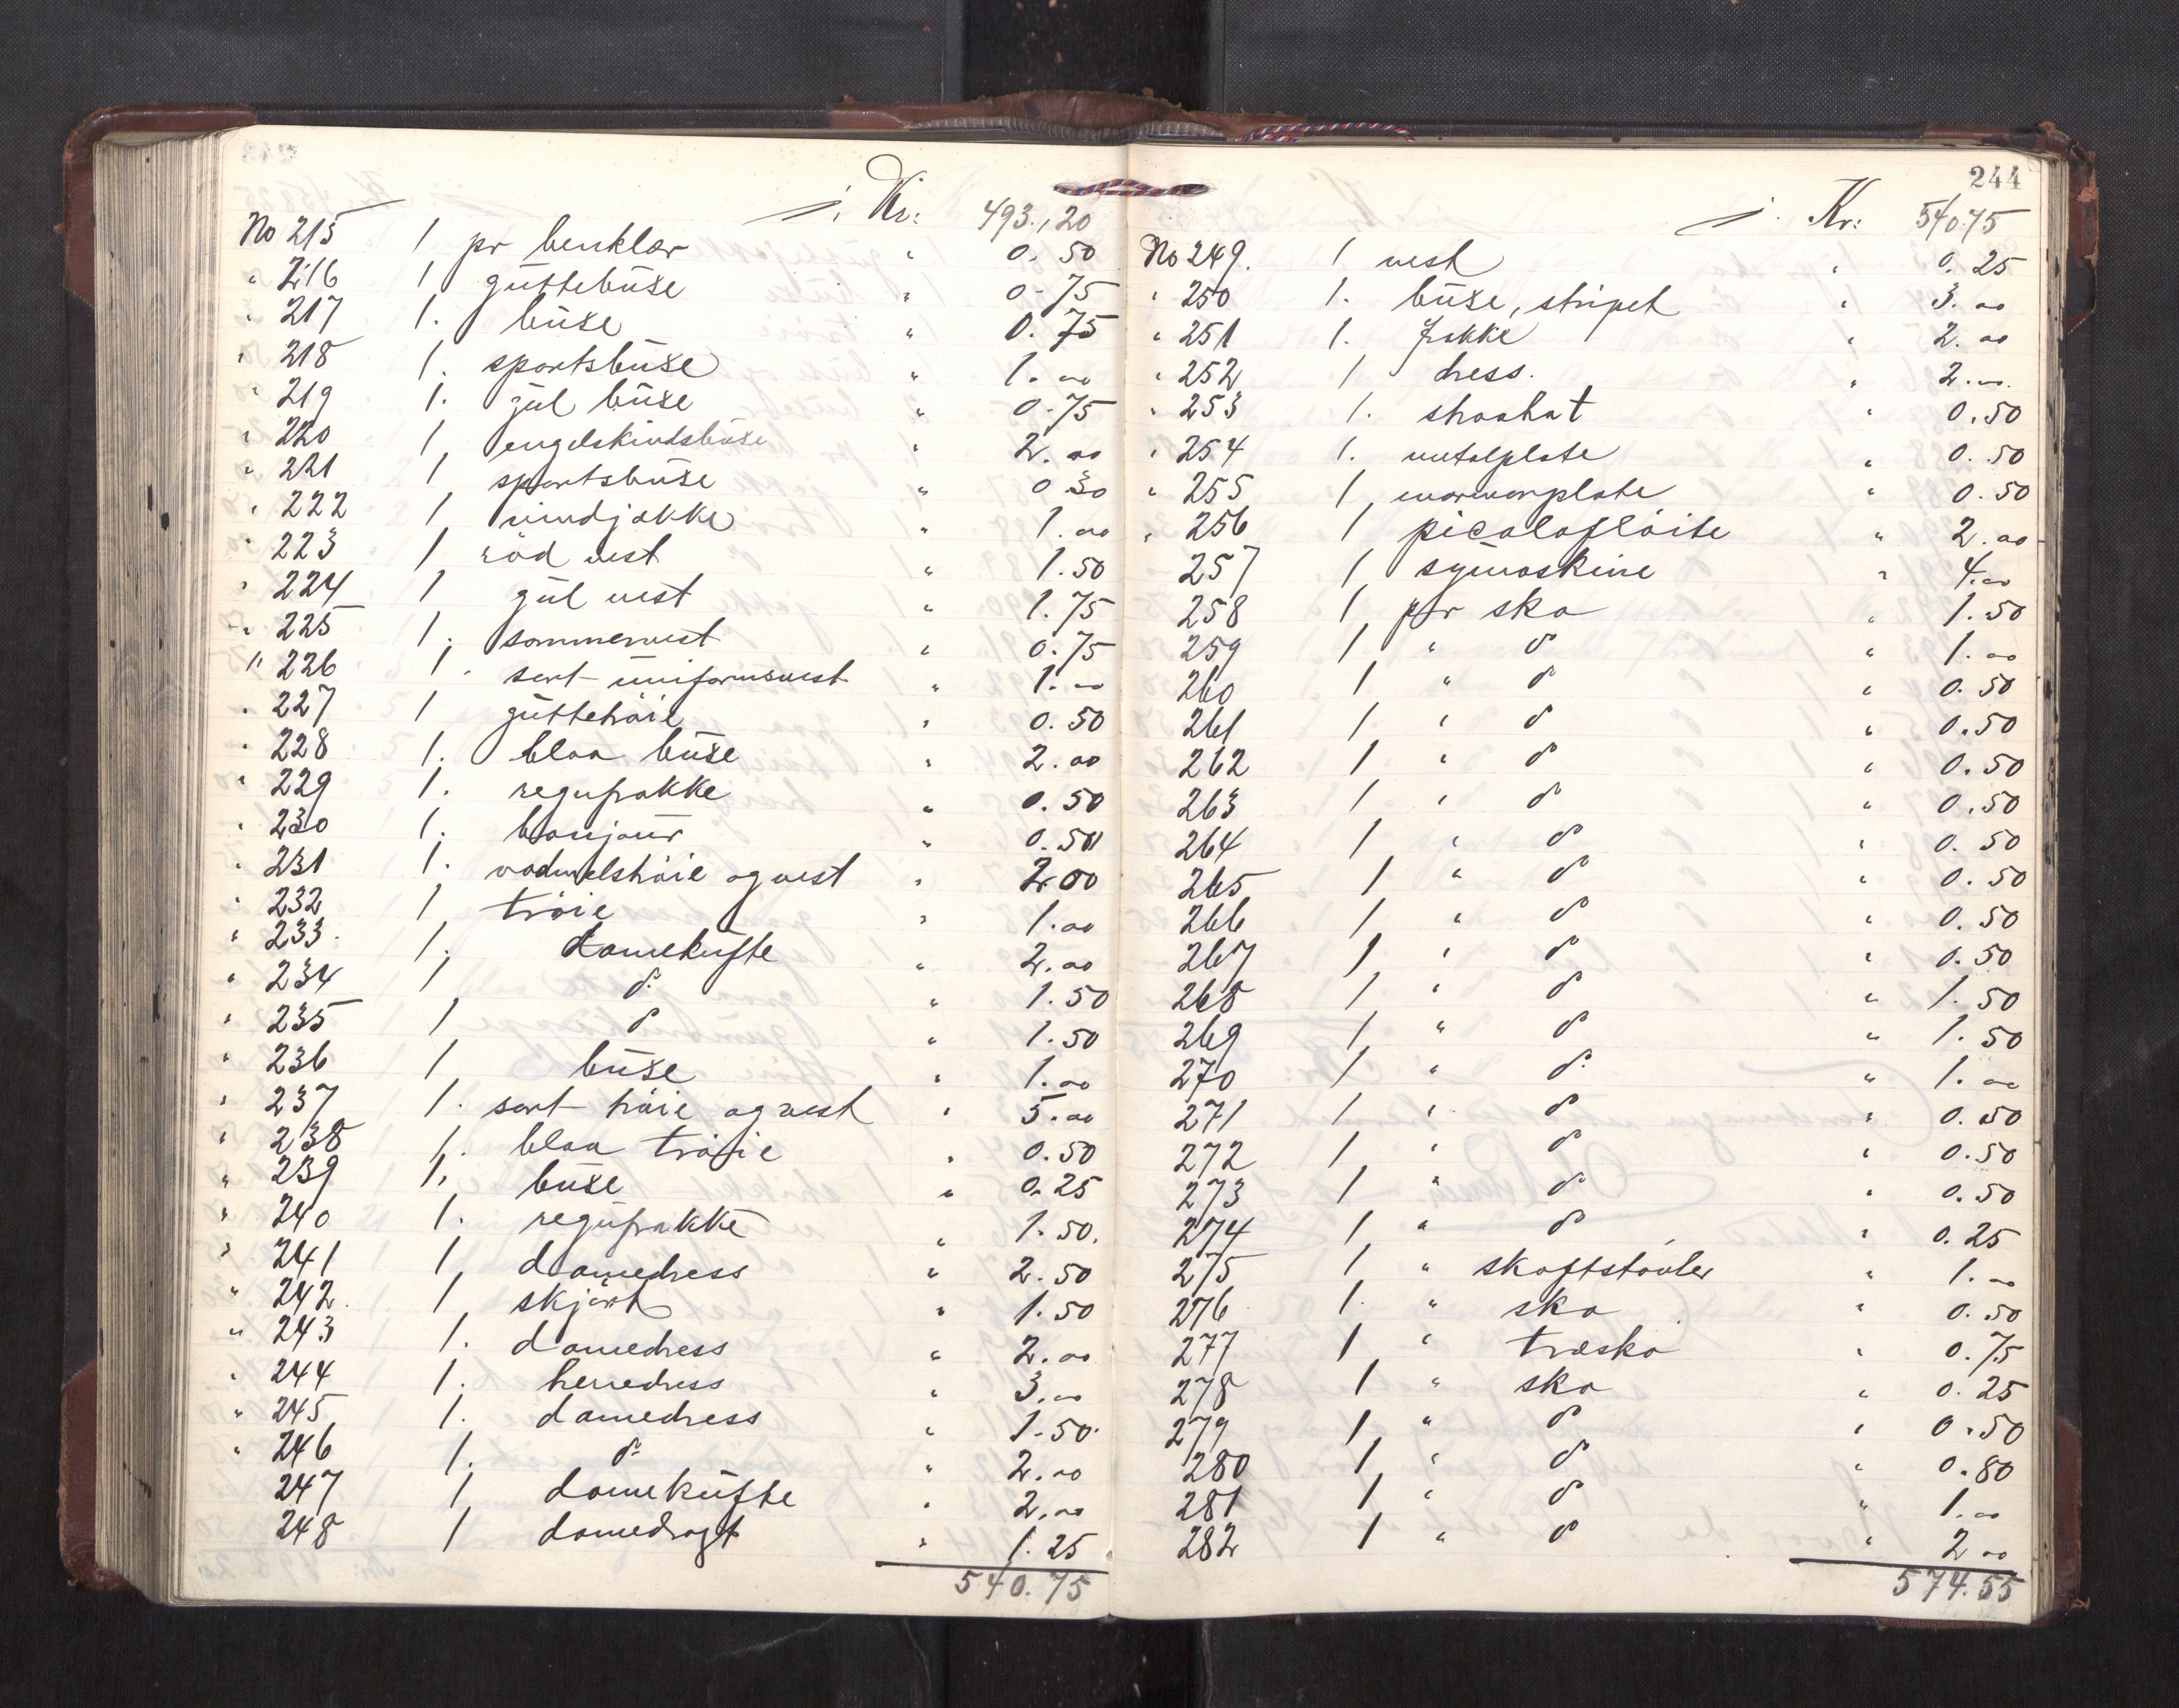 Kr: 493.,20
No 215 1 pr benklær " 0. 50
" 216 1 guttebuxe " 0-75
" 217 1. buxe " 0.75
" 218 1. sportsbuxe " 1.00
" 219 1. gul buxe " 0.75
" 220 1, engelskindsbuxe " 2.00
" 221 1 sportsbuxe " 0.30
" 222 1 vindjakke " 1.00
" 223 1 röd vest " 1.50
" 224 1 gul vest " 1.75
" 225 1. sommervest " 0.75
" 226 1. sort uniformsvest " 1.00
" 227 1 guttetröie " 0.50
" 228 1. blaa buxe " 2.00
" 229 1. regnfrakke " 0.50
" 230 1. bonjour " 0.50
" 231 1. vadmelströie og vest " 2.00
" 232 1, tröie " 1.00
" 233. 1. damekufte " 2.00
" 234 1 do " 1.50
" 235 1 do " 1.50
" 236 1, buxe " 1.00
" 237 1. sort tröie og vest " 5.00
" 238 1. blaa tröie " 0.50
" 239 1, buxe " 0.25
" 240 1. regnfrakke " 1.50.
" 241 1, damedress " 2.50
" 242. 1, skjört " 1.50
" 243 1. damedress " 2.00
" 244 1. herredress " 3.00
" 245 1. damedress " 1.50
" 246 1. do " 2.00
247 1, damekufte " 2.00
248 1 damedragt " 1.25
540.75
244
Kr: 540.75
No 249. 1 vest " 0.25
" 250 1. buxe, stripet " 3.00
" 251 1. frakke " 2.00
" 252 1 dress. " 2.00
" 253 1. straahat " 0.50
" 254 1. metalplate " 0.50
" 255 1, marmorplate " 0.50
" 256 1 picaloflöite " 2.00
257 1, symaskine " 4.00
258 1, par sko " 1.50
259 1 " do " 1.00
260 1 " do " 0.50
261 1 " do " 0.50
262 1 " do " 0.50
263 1 " do " 0.50
264 1 " do " 0.50
265 1 " do " 0.50
266 1 " do " 0.50
267 1 " do " 0.50
268 1, " do " 1.50
269 1 " do " 1.50
270 1 " do " 1.00
271 1 " do " 0.50
272 1 " do " 0.50
273 1 " do " 0.50
274 1, " do " 0.25
275 1 " skaftstövler " 1.00
276 1. " sko " 0.50
277 1 " træsko " 0.75
278 1 " sko " 0.25
279 1, " do " 0.50
280 1, " do " 0.80
281 1, " do " 1.00
282 1 " do " 2.00
574.55